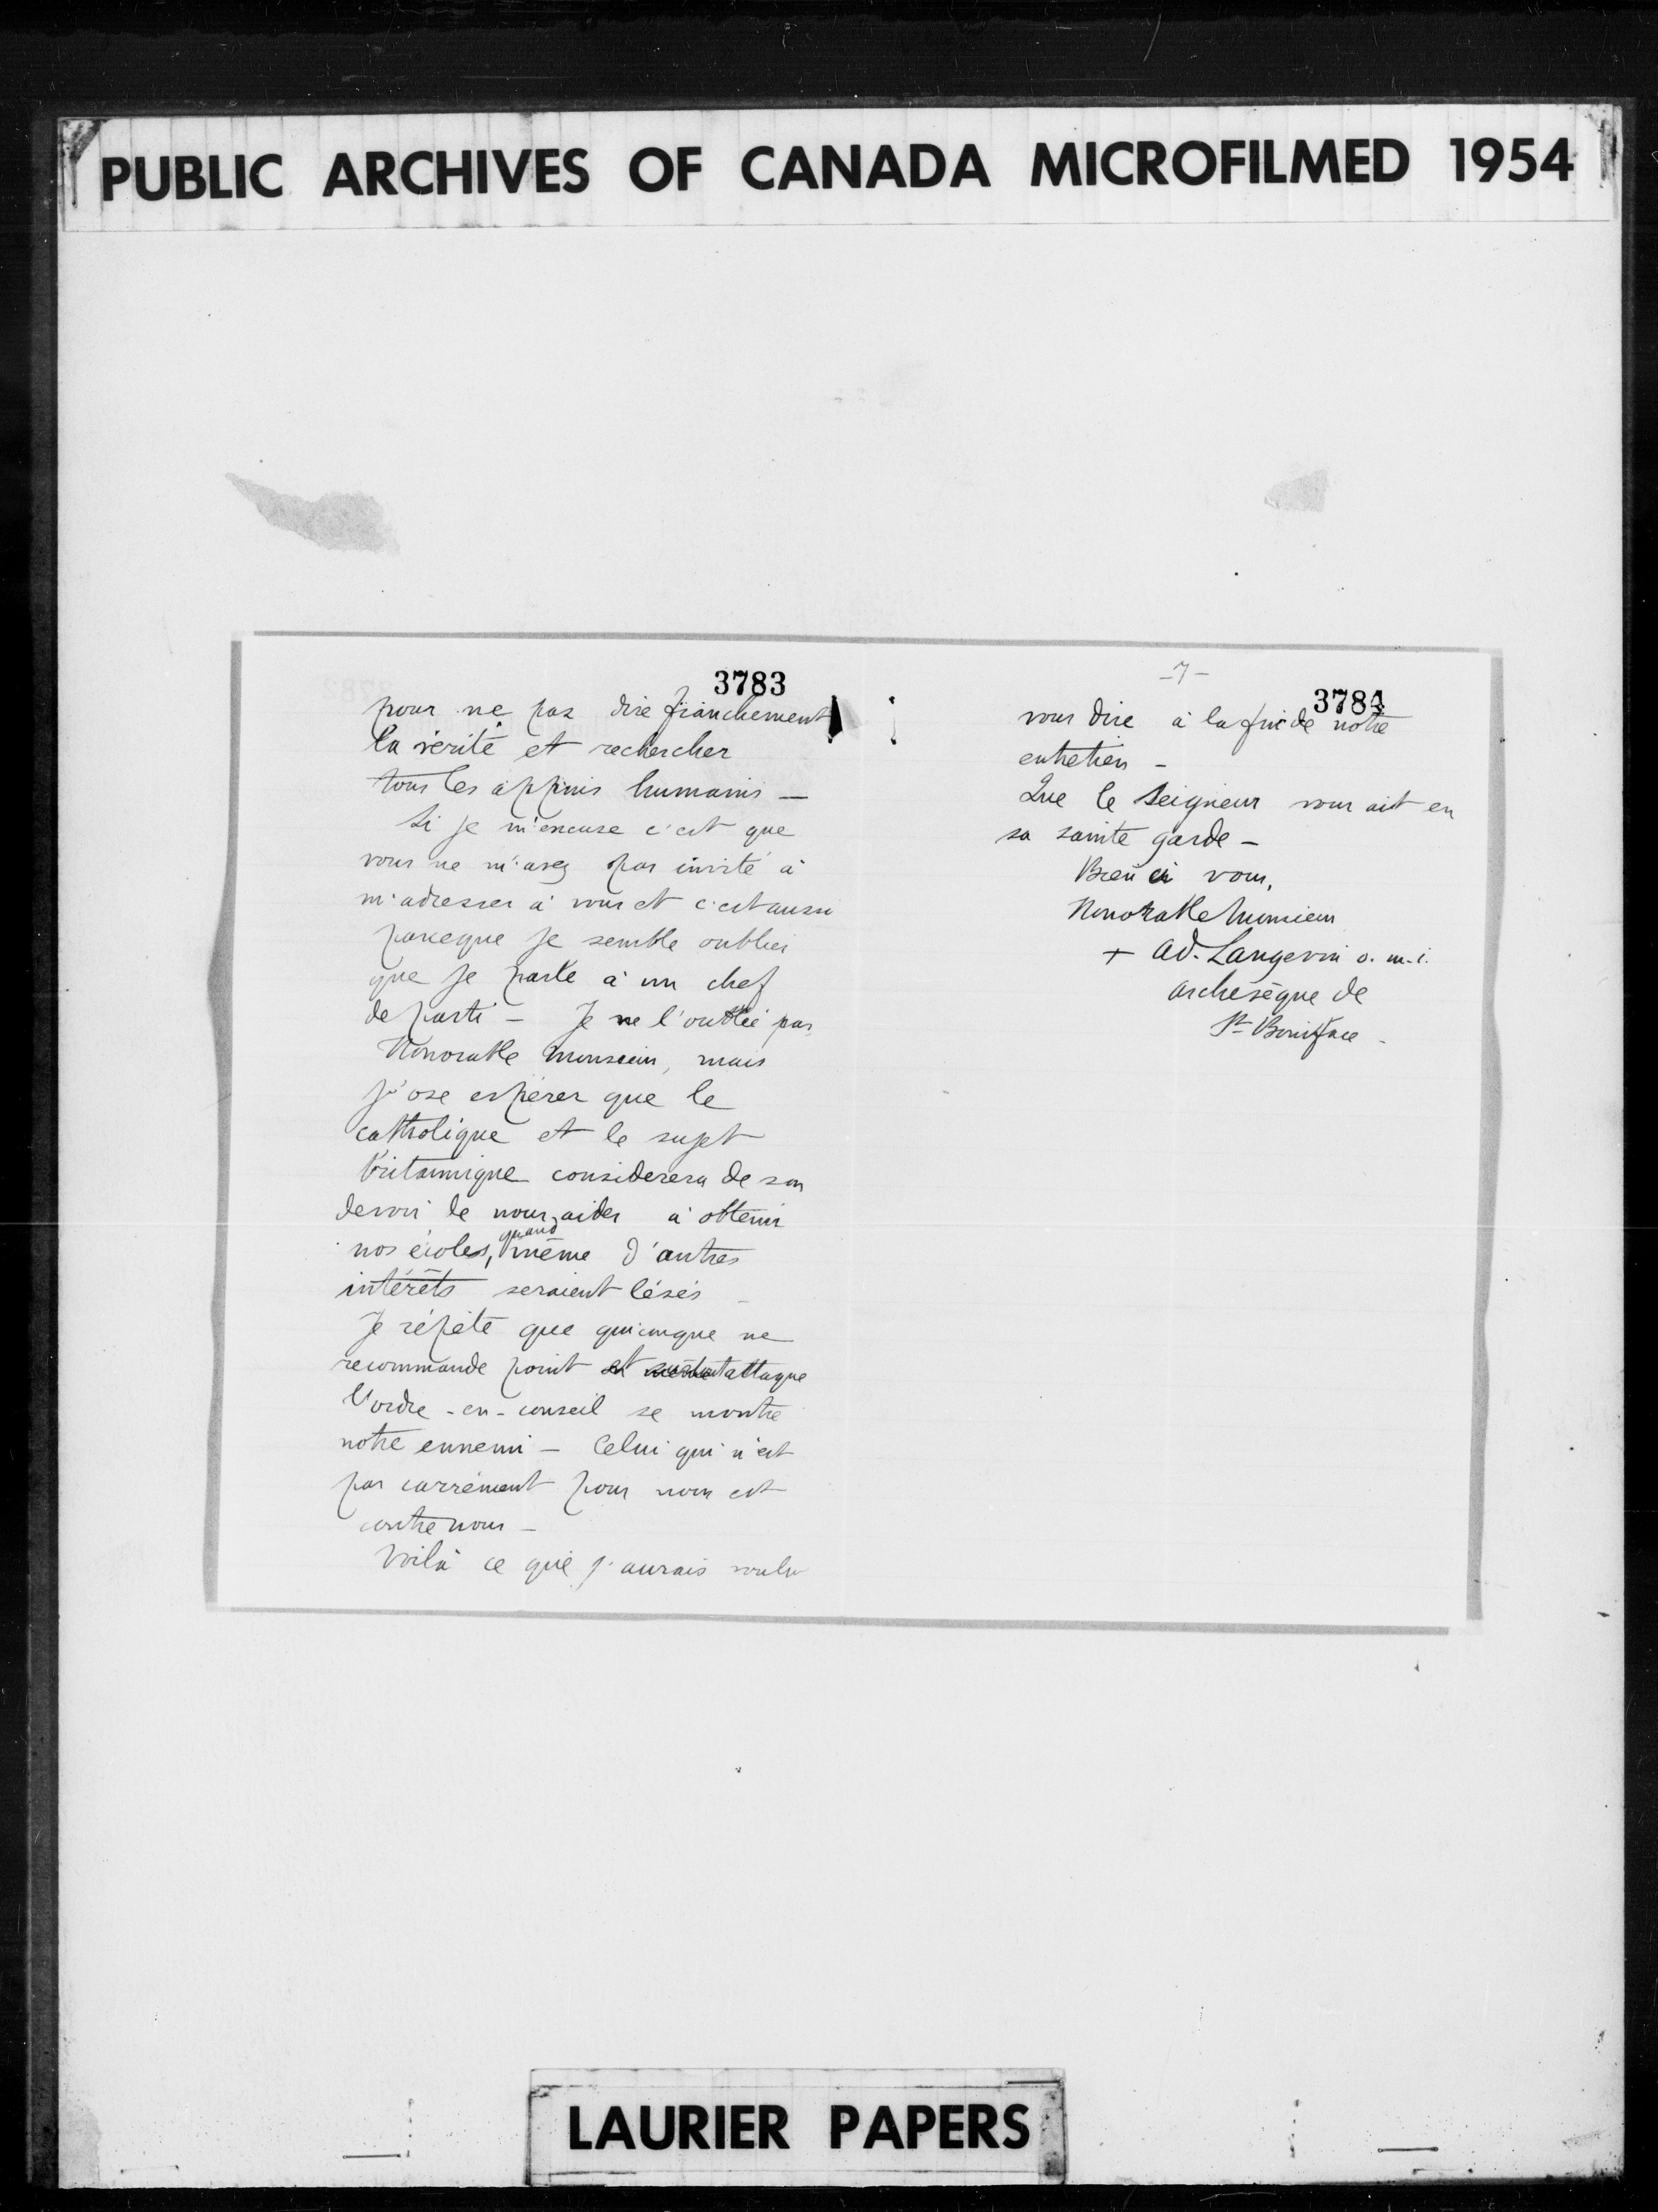 PUBLIC ARCHIVES OF CANADA MICROFILMED 1954
3783
pour ne pas dire franchement
la vérité et rechercher
tous les appuis humains —
Si je m'excuse c'est que
vous ne m'avez pas invité à
m'adresser à vous et c'est aussi
parceque je semble oublier
que je parle à un chef
de parti — Je ne l'oublie pas,
Honorable monsieur, mais
j'ose espérer que le
catholique et le sujet
britannique considerera de son
devoir de nous aider à obtenir
nos écoles, quand même d'autres
intérêts seraient lésés —
Je répète que quiconque ne
recommande point et attaque
l'ordre-en-conseil se montre
notre ennemi — Celui qui n'est
pas carrément pour nous est
contre nous —
Voilà ce que j'aurais voulu
-7-
3784
vous dire à la fin de notre
entretien —
Que le Seigneur vous ait en
sa sainte garde —
Bien à vous,
Honorable monsieur
+ Ad. Langevin o. m. i.
archevêque de
St Boniface -
LAURIER PAPERS